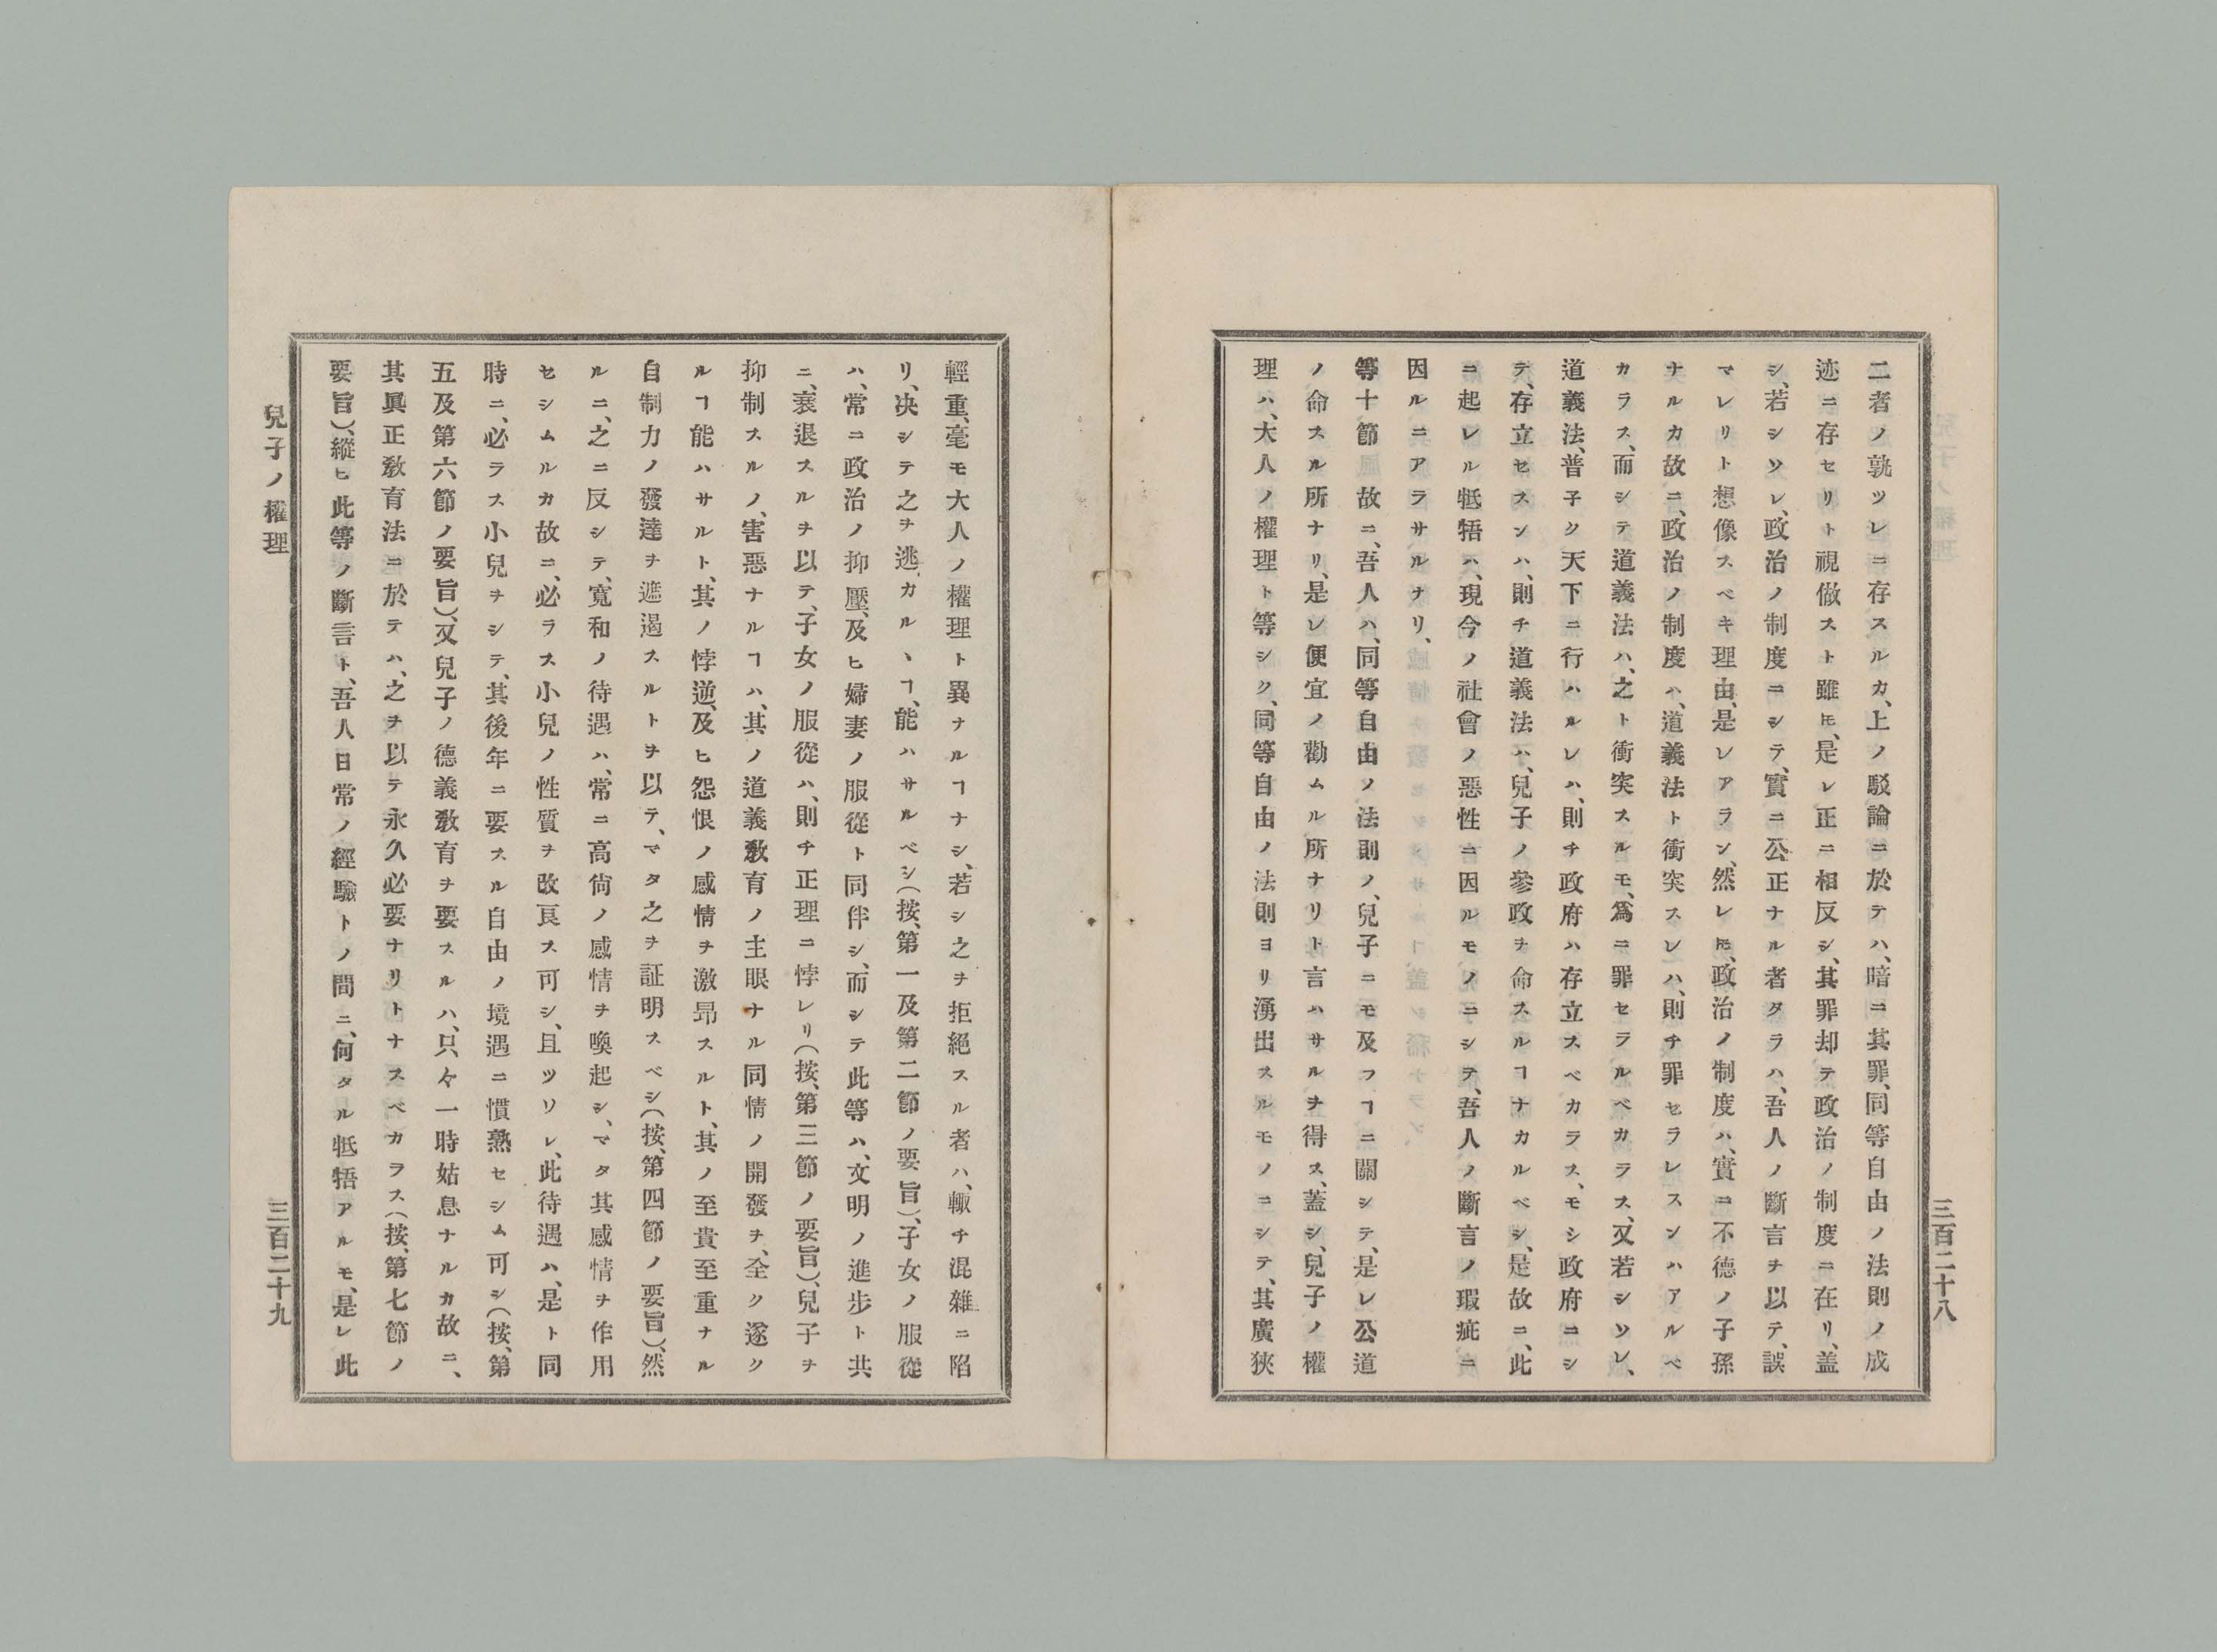 二者ノ孰ツレニ存スルカ、上ノ駁論ニ於テハ、暗ニ其罪、同等自由ノ法則ノ成
迹ニ存セリト視做スト雖𪜈、是レ正ニ相反シ、其罪却テ政治ノ制度ニ在リ、盖
シ、若シソレ、政治ノ制度ニシテ、實ニ公正ナル者タラハ、吾人ノ斷言ヲ以テ、誤
マレリト想像スベキ理由、是レアラン、然レ𪜈、政治ノ制度ハ、實ニ不德ノ子孫
ナルカ故ニ、政治ノ制度ハ、道義法ト衝突スレハ、則チ罪セラレスンハアルベ
カラス、而シテ道義法ハ、之ト衝突スルモ、爲ニ罪セラルベカラス、又若シソレ、
道義法、普子ク天下ニ行ハルレハ、則チ政府ハ存立スベカラス、モシ政府ニシ
テ、存立セスンハ、則チ道義法ハ、兒子ノ參政ヲ命スルヿナカルベシ、是故ニ、此
ニ起レル牴牾ハ、現今ノ社會ノ惡性ニ因ルモノニシテ、吾人ノ斷言ノ瑕疵ニ
因ルニアラサルナリ、
等十節 故ニ、吾人ハ、同等自由ノ法則ノ、兒子ニモ及フヿニ關シテ、是レ公道
ノ命スル所ナリ、是レ便宜ノ勸ムル所ナリト言ハサルヲ得ス、蓋シ、兒子ノ權
理ハ、大人ノ權理ト等シク、同等自由ノ法則ヨリ湧出スルモノニシテ、其廣狹
三百二十八
輕重、毫モ大人ノ權理ト異ナルヿナシ、若シ之ヲ拒絕スル者ハ、輙チ混雜ニ陷
リ、决シテ之ヲ逃カルヽヿ、能ハサルベシ(按、第一及第二節ノ要旨)、子女ノ服從
ハ、常ニ政治ノ抑壓、及ヒ婦妻ノ服從ト同伴シ、而シテ此等ハ、文明ノ進步ト共
ニ、衰退スルヲ以テ、子女ノ服從ハ、則チ正理ニ悖レリ(按、第三節ノ要旨)、兒子ヲ
抑制スルノ、害惡ナルヿハ、其ノ道義敎育ノ主眼ナル同情ノ開發ヲ、全ク遂ク
ルヿ能ハサルト、其ノ悖逆、及ヒ怨恨ノ感情ヲ激昂スルト、其ノ至貴至重ナル
自制力ノ發達ヲ遮遏スルトヲ以テ、マタ之ヲ証明スベシ(按、第四節ノ要旨)、然
ルニ、之ニ反シテ、寬和ノ待遇ハ、常ニ高尙ノ感情ヲ喚起シ、マタ其感情ヲ作用
セシムルカ故ニ、必ラス小兒ノ性質ヲ改良ス可シ、且ツソレ、此待遇ハ、是ト同
時ニ、必ラス小兒ヲシテ、其後年ニ要スル自由ノ境遇ニ慣熟セシム可シ(按、第
五及第六節ノ要旨)、又兒子ノ德義敎育ヲ要スルハ、只々一時姑息ナルカ故ニ、
其眞正敎育法ニ於テハ、之ヲ以テ永久必要ナリトナスベカラス(按、第七節ノ
要旨)、縱ヒ此等ノ斷言ト、吾人日常ノ經驗トノ間ニ、何タル牴牾アルモ、是レ此
兒子ノ權理
三百二十九